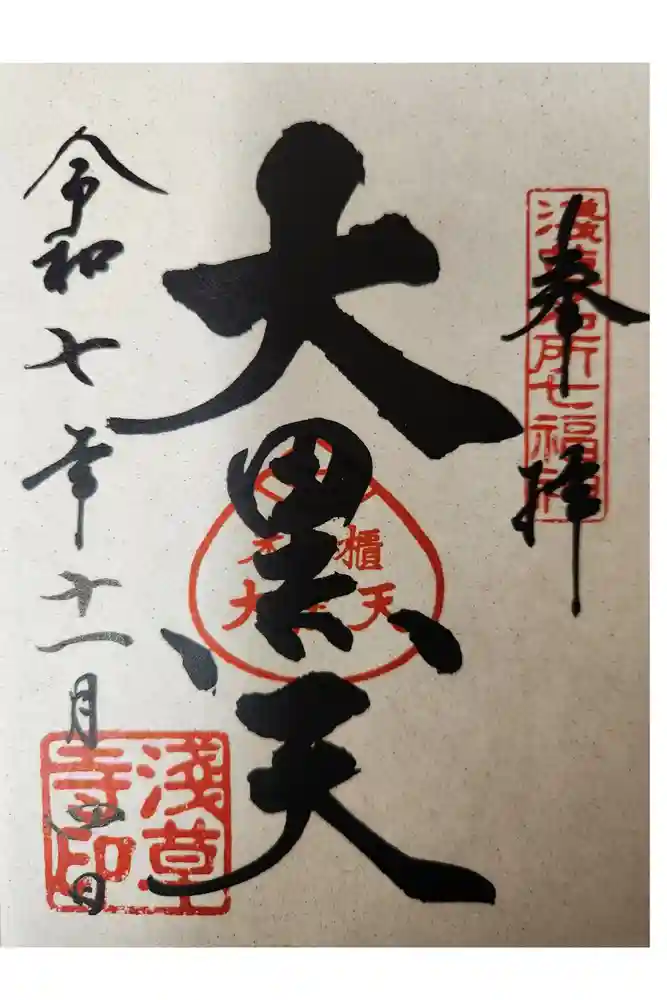 奉拝
淺草名所七福神
大黒天
米櫃
大黒天
令和七年十一月四日
淺草寺印